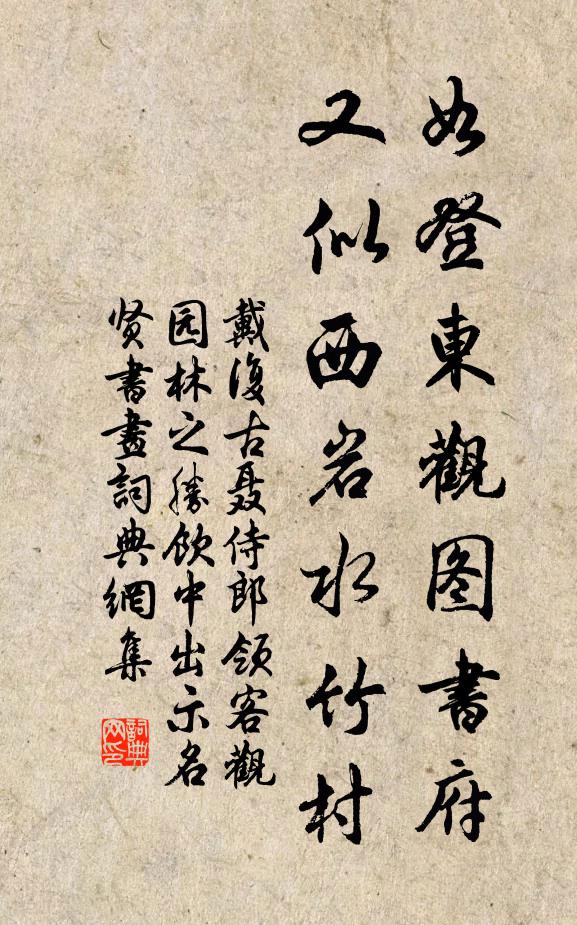 如登東觀图書府
又似西岩水竹村
戴復古聂侍郎领客觀
园林之勝飲中出示名
贤書畫詞典網集
詞典
网印